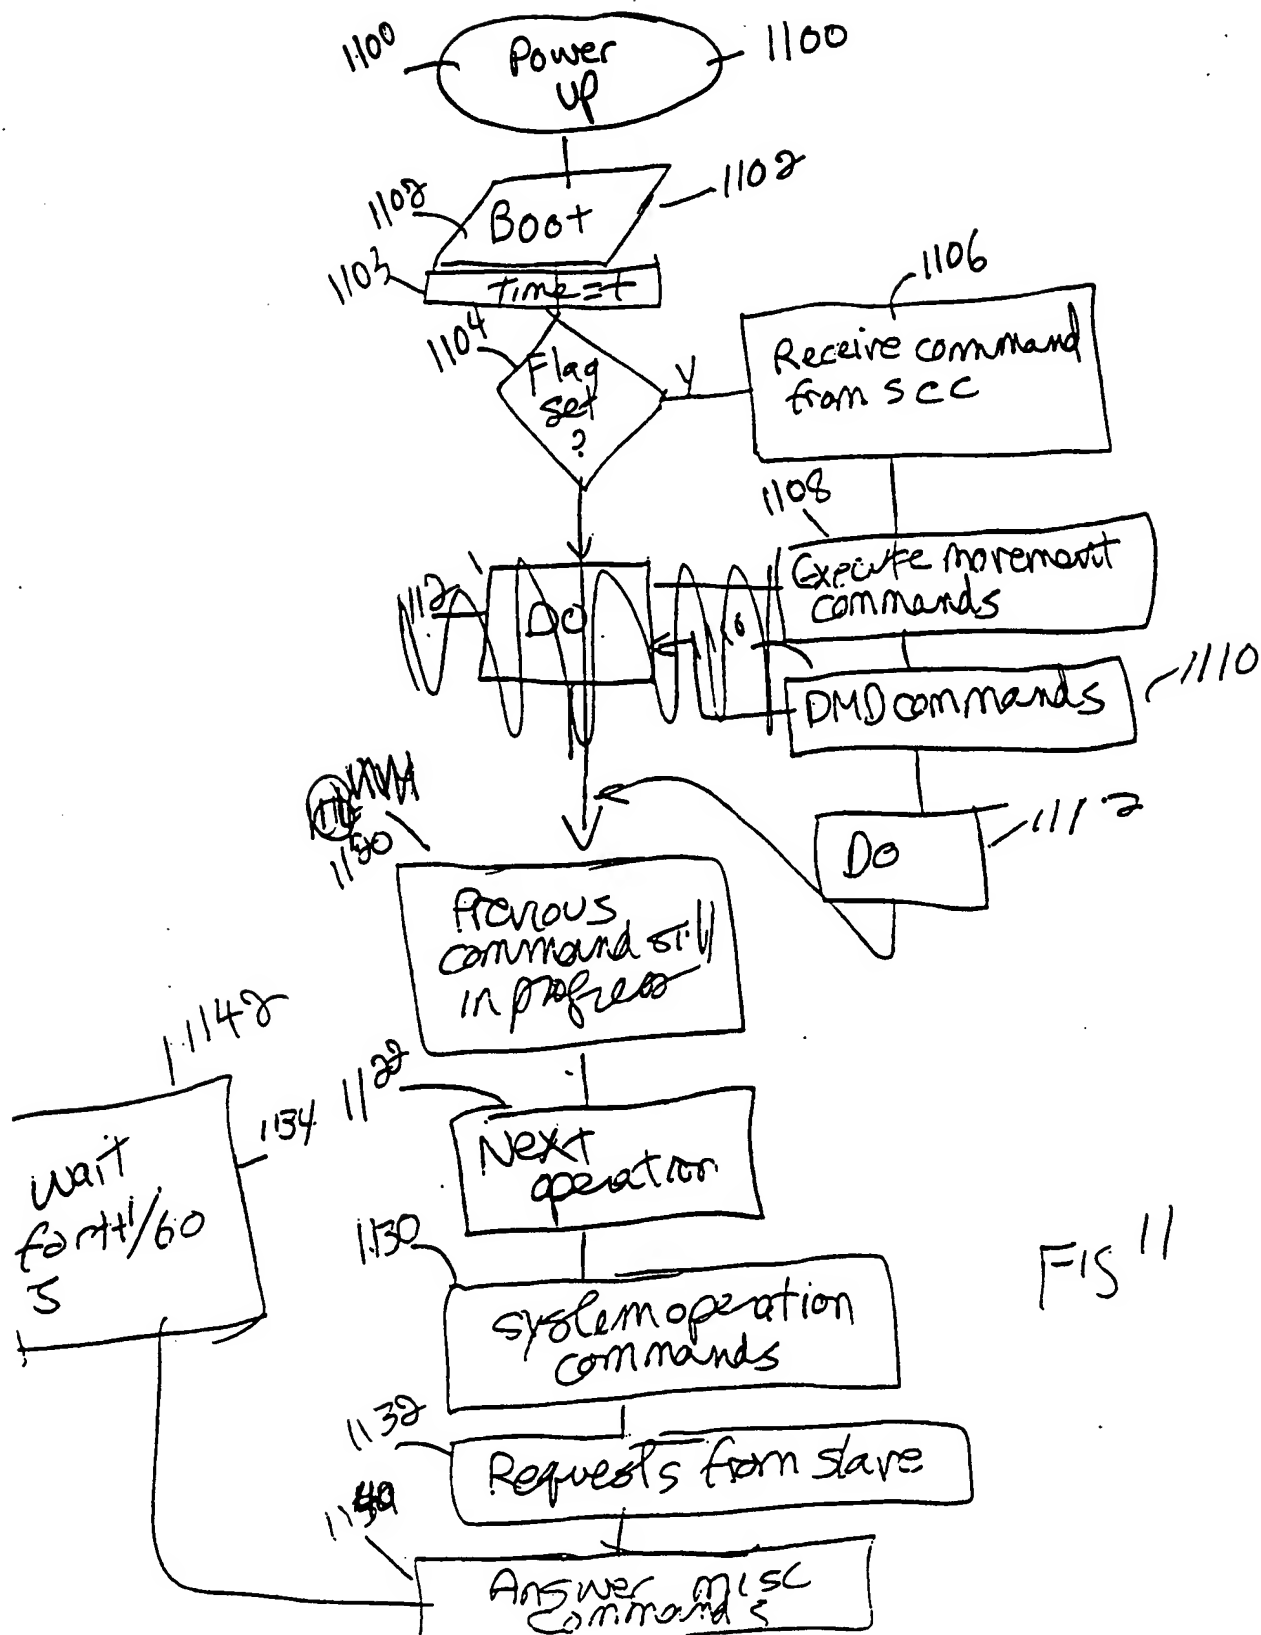 1100
Power
up
1100
1102
Boot
1102
1103
time=t
1104
Flag
set
?
Y
1106
Receive command
from scc
1108
Execute movement
commands
1112
DO
DMD commands
1110
Do
1112
1120
Previous
command still
in progress
1122
Next
operation
1130
system operation
commands
1132
Requests from slave
1140
Answer misc
commands
1142
1134
wait
Fig 11